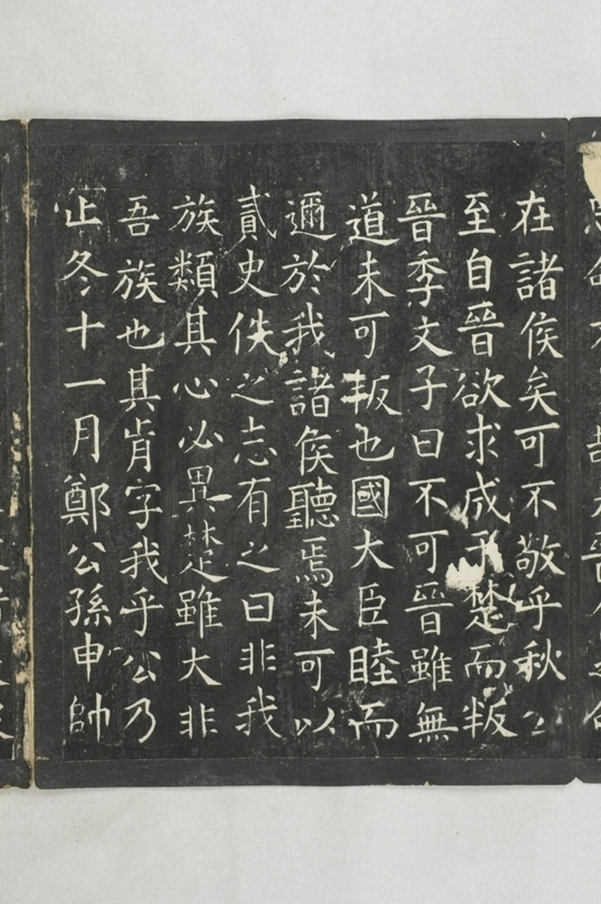 在諸侯矣可不敬乎秋公
至自晉欲求成于楚而叛
晉季文子曰不可晉雖無
道未可叛也國大臣睦而
邇於我諸侯聽焉未可以
貳史佚之志有之曰非我
族類其心必異楚雖大非
吾族也其肯字我乎公乃
止冬十一月鄭公孫申帥